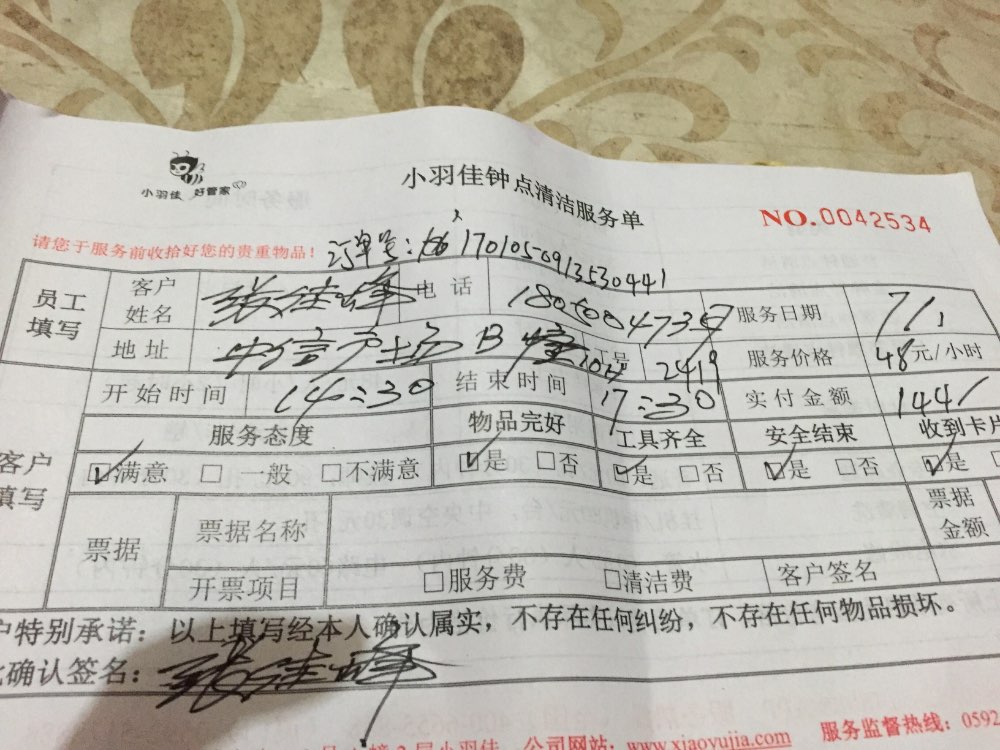 小羽佳 好管家
小羽佳钟点清洁服务单
NO.0042534
请您于服务前收拾好您的贵重物品!
订单号: 1701050913530441
员工填写 客户姓名 张佳峰 电话 服务日期 7/1
地址 中信广场B幢 工号 2419 服务价格 48元/小时
开始时间 14:30 结束时间 17:30 实付金额 144/
客户填写 服务态度 物品完好 工具齐全 安全结束 收到卡片
☑满意 □一般 □不满意 ☑是 □否 ☑是 □否 ☑是 □否 ☑是
票据 票据名称 票据金额
开票项目 □服务费 □清洁费 客户签名
户特别承诺:以上填写经本人确认属实,不存在任何纠纷,不存在任何物品损坏。
确认签名: 张佳峰
服务监督热线:0592
2号小羽佳 公司网站:www.xiaoyujia.com